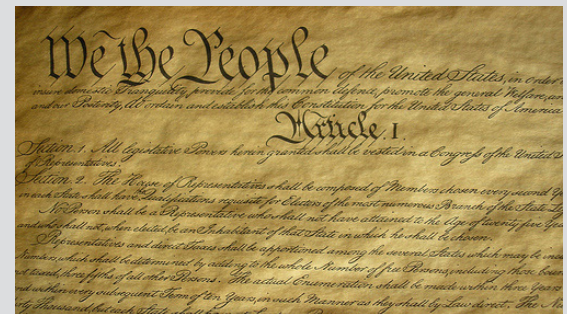 We the People of the United States, in Order
insure domestic Tranquility, provide for the common defence, promote the general Welfare, an
and our Posterity, do ordain and establish this Constitution for the United States of America
Article. I.
Section. 1. All legislative Powers herein granted shall be vested in a Congress of the United
of Representatives.
Section. 2. The House of Representatives shall be composed of Members chosen every second Y
in each State shall have Qualifications requisite for Electors of the most numerous Branch of the State L
No Person shall be a Representative who shall not have attained to the Age of twenty five Ye
and who shall not, when elected, be an Inhabitant of that State in which he shall be chosen.
Representatives and direct Taxes shall be apportioned among the several States which may be inc
Numbers, which shall be determined by adding to the whole Number of free Persons, including those boun
not taxed, three fifths of all other Persons. The actual Enumeration shall be made within three Years
and within every subsequent Term of ten Years, in such Manner as they shall by Law direct. The Nu
thirty Thousand, but each State shall